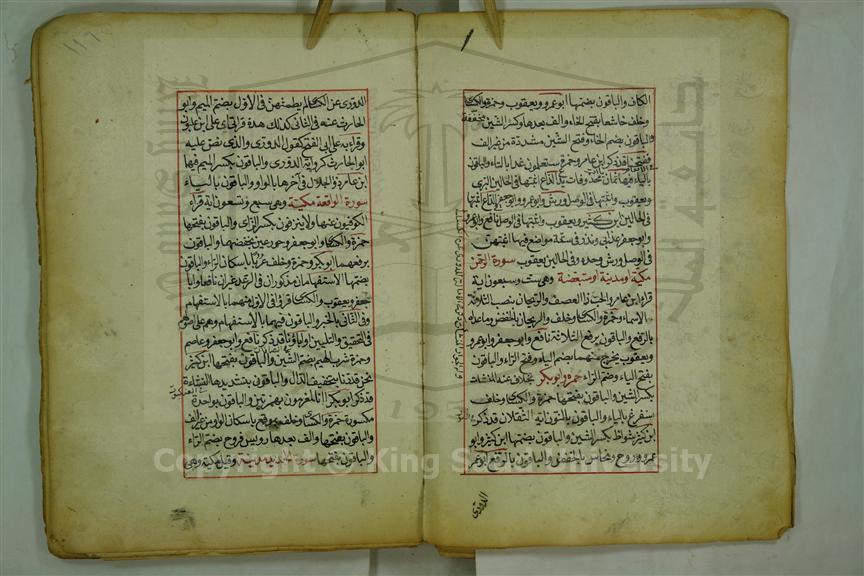 الكاف والباقون بضمها ابو عمرو ويعقوب وحمزة والكسائي
وخلف خاشعا بفتح الخاء والف بعدها وكسر الشين مخففة
والباقون بضم الخاء وفتح الشين مشددة من غير الف
ففتحنا قد ذكر ابن عامر وحمزة ستعلمون غدا بالتاء والباقون
بالياء فيها ثمان محذوفات يدع الداع اثبتها في الحالين البزى
ويعقوب واثبتها في الوصل ورش وابو عمرو وابو جعفر الى الداع اثبتها
في الحالين ابن كثير ويعقوب واثبتها في الوصل نافع وابو عمرو
وابو جعفر عذابي ونذر في ستة مواضع فيها اثبتهن
في الوصل ورش وحده وفي الحالين يعقوب سورة الرحمن
مكية او مدنية او متبعضة وهي ست وسبعون اية
قرا ابن عامر والحب ذا العصف والريحان بنصب الثلاثة
الاسماء وحمزة والكسائي وخلف والريحان بالخفض وما عداه
بالرفع والباقون برفع الثلاثة نافع وابو جعفر وابو عمرو
ويعقوب يخرج منهما بضم الياء وفتح الراء والباقون
بفتح الياء وضم الراء حمزة وابو بكر بخلاف عنه المنشات
بكسر الشين والباقون بفتحها حمزة والكسائي وخلف
سيفرغ بالياء والباقون بالنون ايه الثقلان قد ذكر
ابن كثير شواظ بكسر الشين والباقون بضمها ابن كثير وابو
عمرو وروح ونحاس بالخفض والباقون بالرفع ابو عمر
الدوري
١١٦
الدوري عن الكسائي لم يطمثهن في الاول بضم الميم وابو
الحارث عنه في الثاني كذلك هذه قراتي على ابن غلبون
وقراته على ابي الفتح كقول الدوري والذي نص عليه
ابو الحارث كرواية الدوري والباقون بكسر الميم فيها
ابن عامر ذو الجلال في آخرها بالواو والباقون بالياء
سورة الواقعة مكية وهي سبع وتسعون اية قرا
الكوفيون عنها ولا ينزفون بكسر الزاى والباقون بفتحها
حمزة والكسائي وابو جعفر وحور عين بخفضهما والباقون
برفعهما ابو بكر وحمزة وخلف عربا باسكان الراء والباقون
بضمها الاستفهامان مذكوران في الرعد غير ان نافعا وابا
جعفر ويعقوب والكسائي قرا في الاول منهما بالاستفهام
وفي الثاني بالخبر والباقون فيهما بالاستفهام وهم على اصولهم
في التحقيق والتليين اواباؤنا قد ذكر نافع وابو جعفر وعاصم
وحمزة شرب الهيم بضم الشين والباقون بفتحها ابن كثير
نحن قدرنا بتخفيف الدال والباقون بتشديدها النشاءة
في العنكبوت
قد ذكر ابو بكر اانا لمغرمون بهمزتين والباقون بواحدة
مكسورة حمزة والكسائي وخلف بموقع باسكان الواو من غير الف
والباقون بفتحها والف بعدها رويس فروح بضم الراء
والباقون بفتحها سورة الحديد مدنية وقيل مكية وهي
Copyright © King Saud University